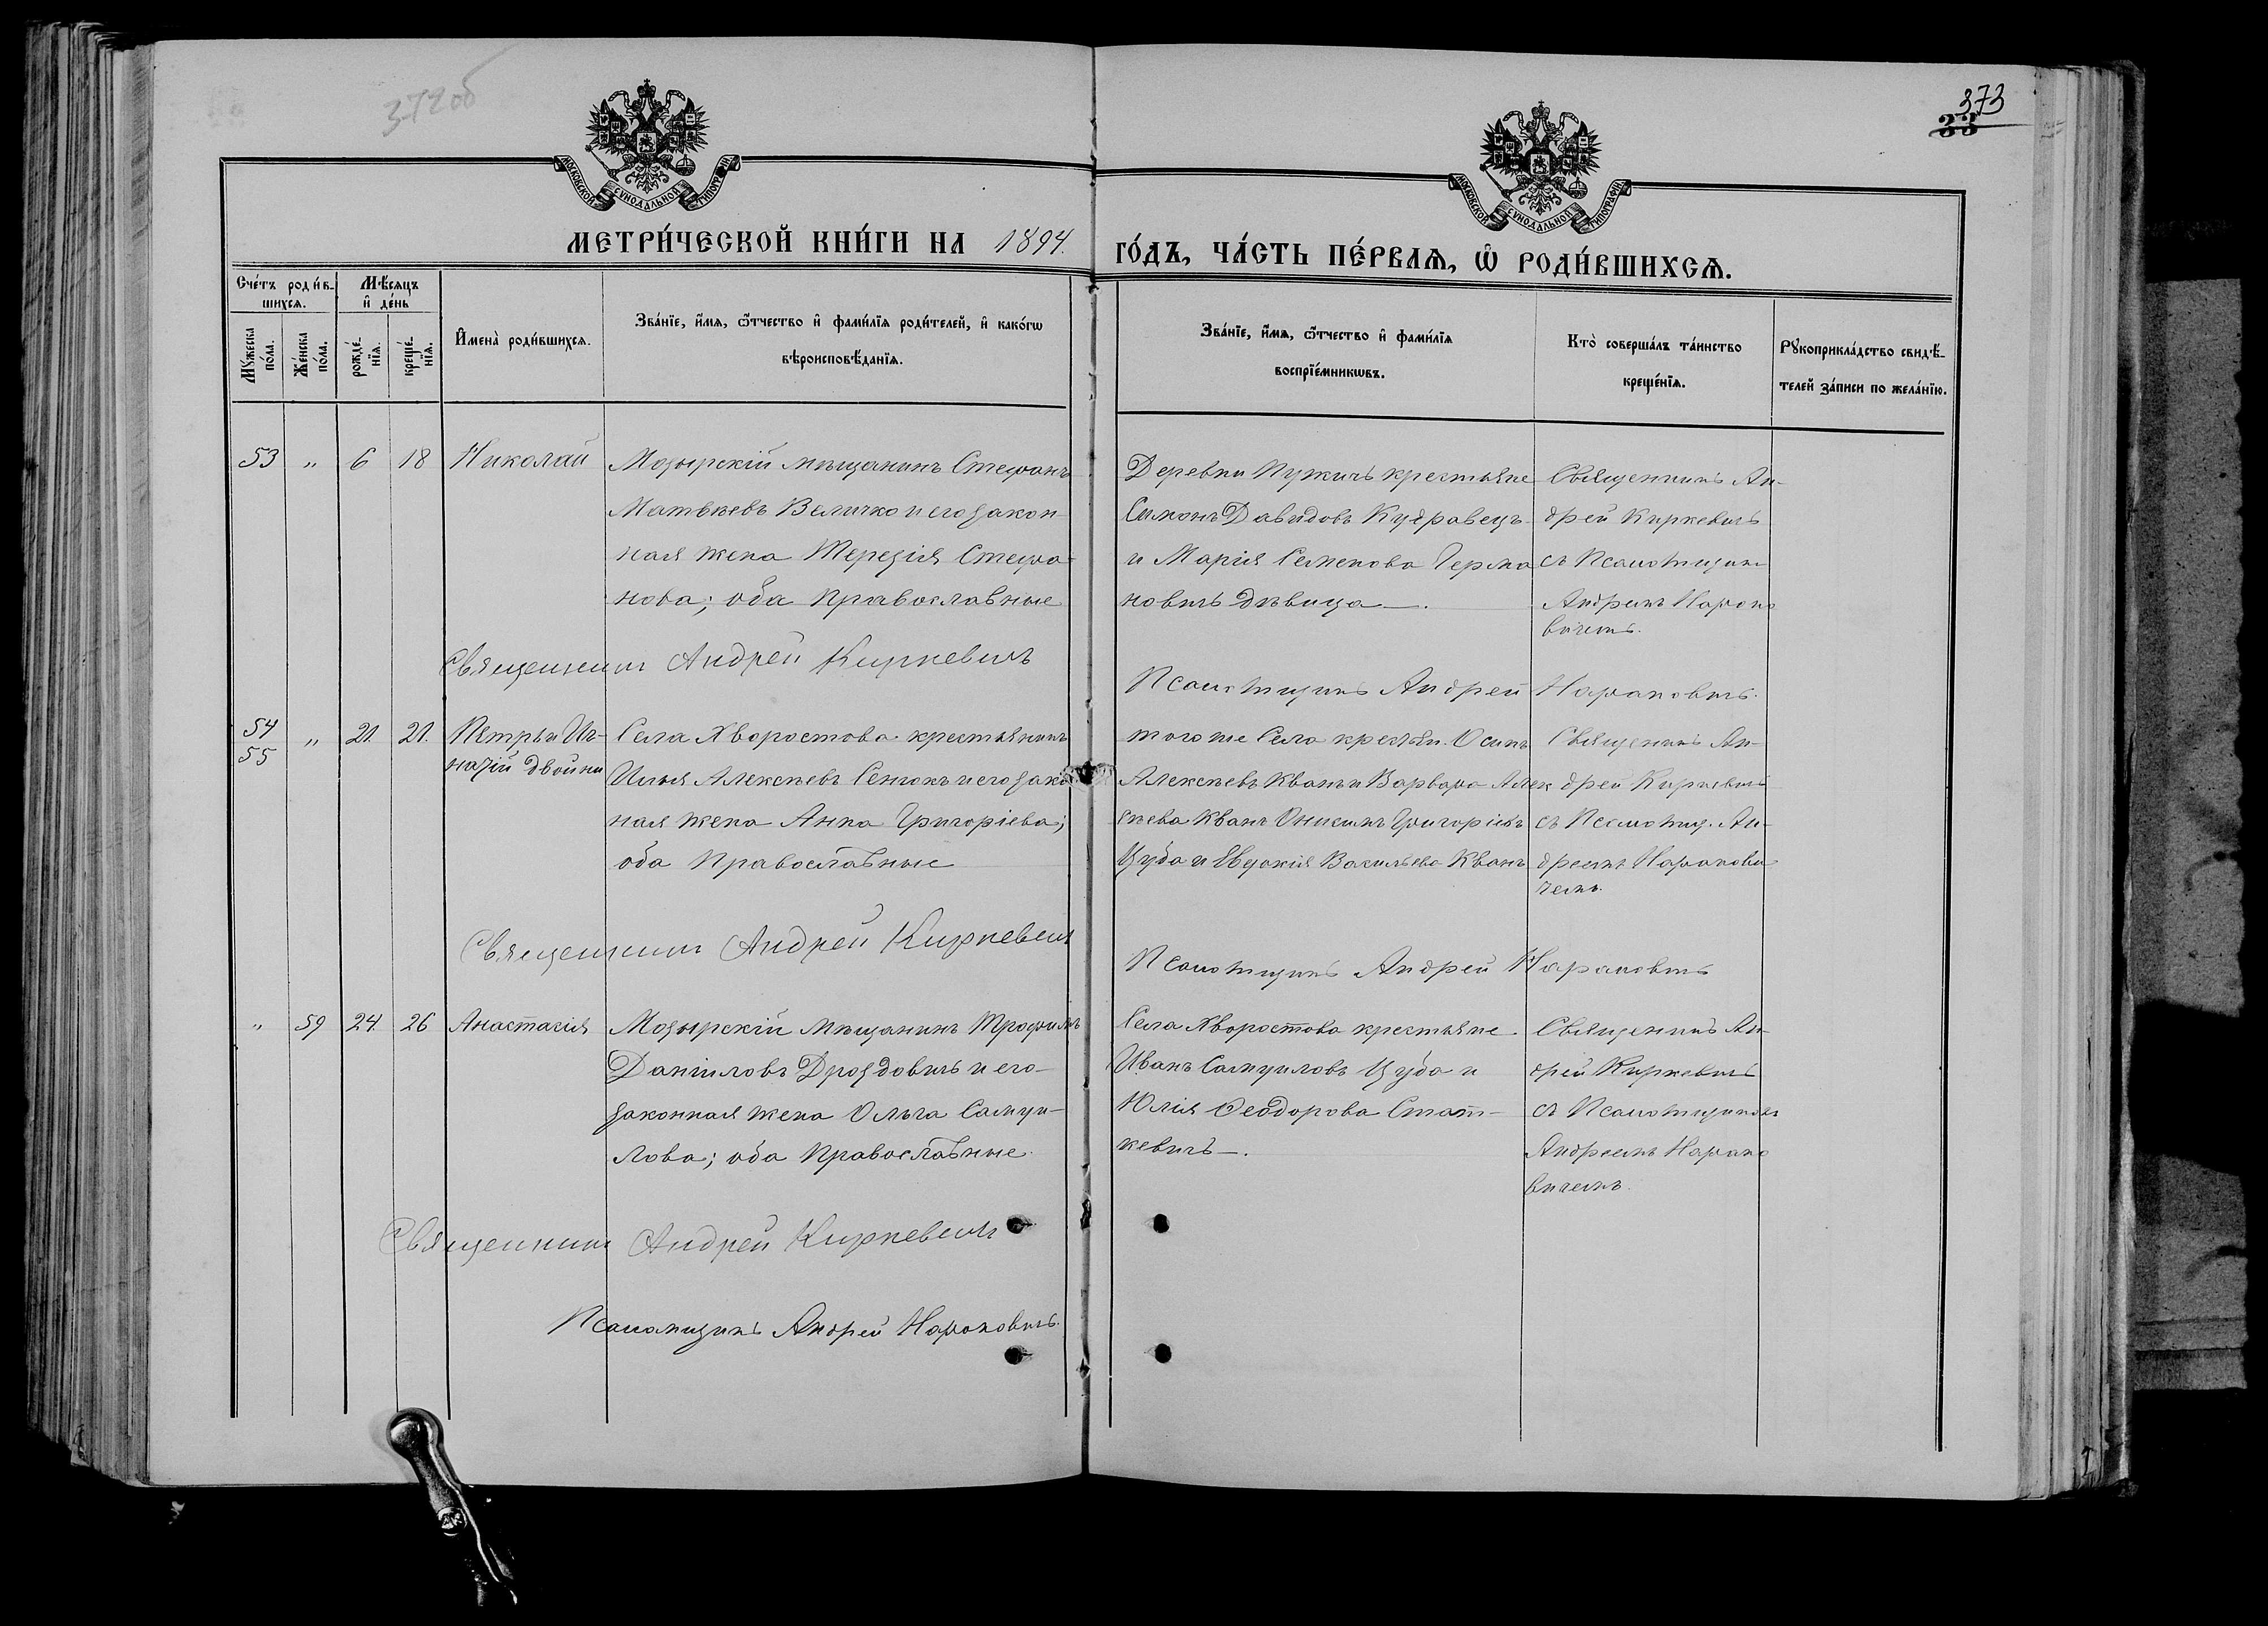 372об
373
33
МОСКОВСКОЙ СѴНОДАЛЬНОЙ ТИПОГРАФІИ
МОСКОВСКОЙ СѴНОДАЛЬНОЙ ТИПОГРАФІИ
МЕТРИ́ЧЕСКОЙ КНИ́ГИ НА 1894.
ГО́ДЪ, ЧА́СТЬ ПЕ́РВАѦ, Ѡ҆ РОДИ́ВШИХСѦ.
Сче́тъ роди́в-
шихсѧ.
Мꙋ́жеска по́ла.
Же́нска по́ла.
Мѣ́сѧцъ
и҆ де́нь
рожде́-
нїѧ.
креще́-
нїѧ.
И҆мена̀ роди́вшихсѧ.
Зва́нїе, и҆́мѧ, ѻ҆́тчество и҆ фами́лїѧ роди́телей, и҆ како́гѡ
вѣроисповѣ́данїѧ.
Зва́нїе, и҆́мѧ, ѻ҆́тчество и҆ фами́лїѧ
воспрїе́мникѡвъ.
Кто̀ соверша́лъ та́инство
креще́нїѧ.
Рꙋкоприкла́дство свидѣ́-
телей за́писи по жела́нїю.
53 " 6 18 Николай
Мозырскій мѣщанинъ Стефанъ
Матвѣевъ Величко и его закон-
ная жена Терезія Стефа-
нова; оба Православные
Деревни Пужичъ крестьяне
Симонъ Давидовъ Кудравецъ
и Марія Семенова Герма
новичъ дѣвица.
Священникъ Ан-
дрей Киркевичъ
съ Псаломщик.
Андреемъ Нарано
вичемъ.
Священникъ Андрей Киркевичъ
Псаломщикъ Андрей Нарановичъ.
54
55 " 21. 21. Петръ и Иг-
натій двойни
Села Хворостова крестьянинъ
Илья Алексѣевъ Сенюкъ и его зако
ная жена Анна Григоріева;
оба Православные
того же Села крестьян. Осипъ
Алексѣевъ Квачъ и Варвара Алек
сѣева Квачъ Онисимъ Григоріевъ
Цуба и Евдокія Васильева Квачъ
Священникъ Ан-
дрей Киркевичъ
съ Псаломщ. Ан-
дреемъ Наранови
чемъ.
Священникъ Андрей Киркевичъ
Псаломщикъ Андрей Нарановичъ
" 59 24. 26 Анастасія
Мозырскій мѣщанинъ Трофимъ
Даніиловъ Дроздовичъ и его
законная жена Ольга Самуи-
лова; оба Православные.
Села Хворостова крестьяне.
Иванъ Самуиловъ Цуба и
Юлія Ѳеодорова Стат-
кевичъ.
Священникъ Ан-
дрей Киркевичъ
съ Псаломщикомъ
Андреемъ Нарано
вичемъ.
Священникъ Андрей Киркевичъ
Псаломщикъ Андрей Нарановичъ.